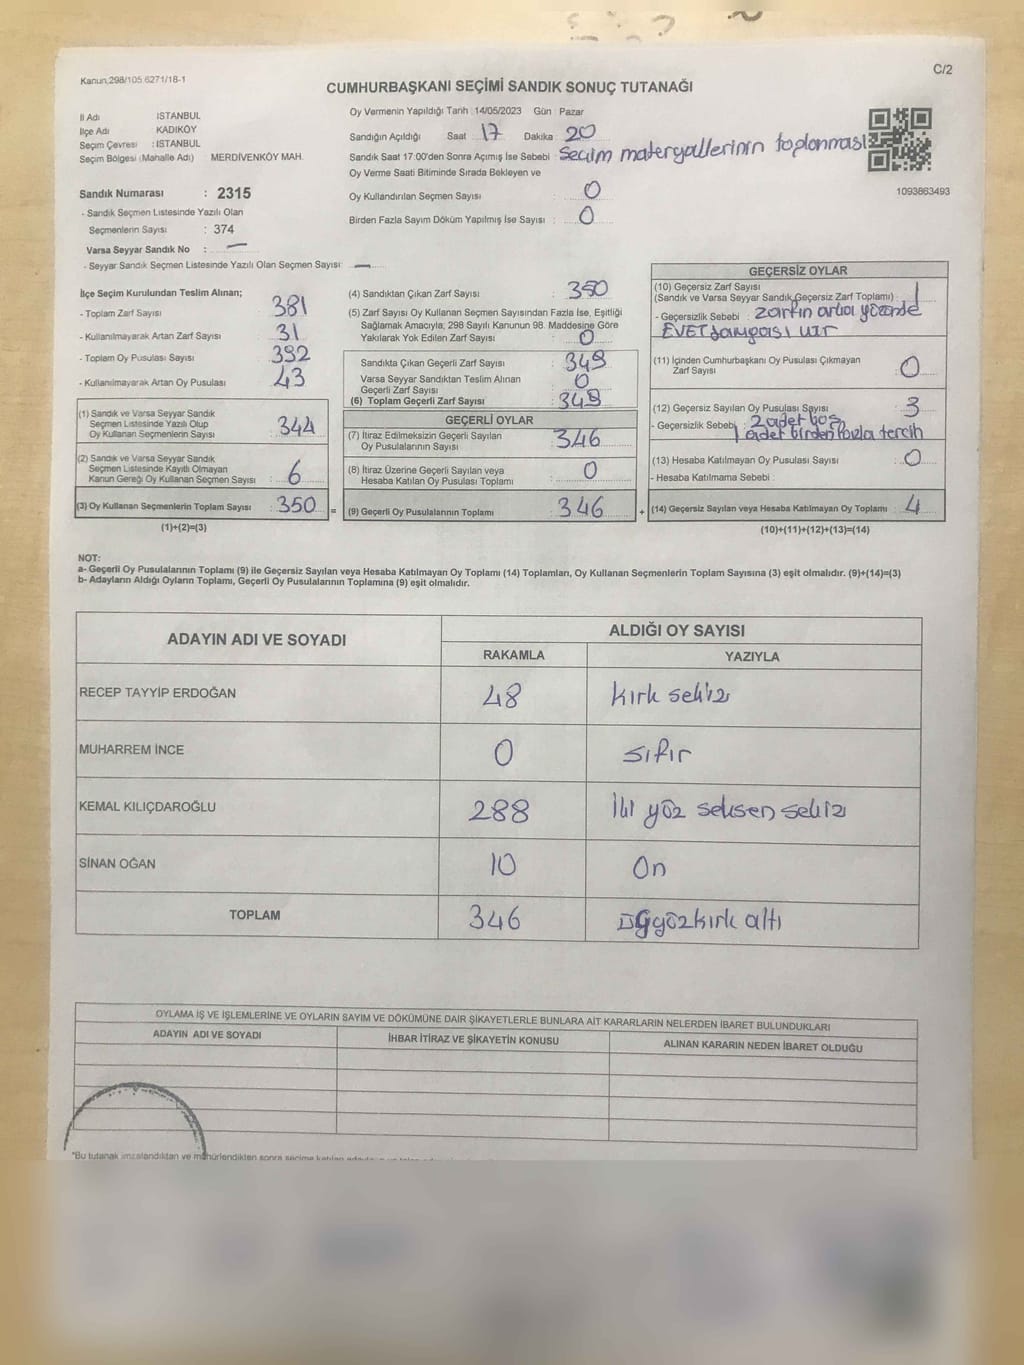 Kanun,298/105 6271/18-1
C/2
CUMHURBAŞKANI SEÇİMİ SANDIK SONUÇ TUTANAĞI
İl Adı İSTANBUL
İlçe Adı KADIKÖY
Seçim Çevresi : İSTANBUL
Seçim Bölgesi (Mahalle Adı) MERDİVENKÖY MAH.
Oy Vermenin Yapıldığı Tarih : 14/05/2023 Gün : Pazar
Sandığın Açıldığı Saat : 17 Dakika : 20
Sandık Saat 17:00'den Sonra Açımış İse Sebebi : Seçim materyallerinin toplanması
Oy Verme Saati Bitiminde Sırada Bekleyen ve
Oy Kullandırılan Seçmen Sayısı : 0
Birden Fazla Sayım Döküm Yapılmış İse Sayısı : 0
1093863493
Sandık Numarası : 2315
- Sandık Seçmen Listesinde Yazılı Olan
Seçmenlerin Sayısı : 374
Varsa Seyyar Sandık No : —
- Seyyar Sandık Seçmen Listesinde Yazılı Olan Seçmen Sayısı: —
İlçe Seçim Kurulundan Teslim Alınan;
- Toplam Zarf Sayısı : 381
- Kullanılmayarak Artan Zarf Sayısı : 31
- Toplam Oy Pusulası Sayısı : 392
- Kullanılmayarak Artan Oy Pusulası : 43
(1) Sandık ve Varsa Seyyar Sandık
Seçmen Listesinde Yazılı Olup
Oy Kullanan Seçmenlerin Sayısı : 344
(2) Sandık ve Varsa Seyyar Sandık
Seçmen Listesinde Kayıtlı Olmayan
Kanun Gereği Oy Kullanan Seçmen Sayısı : 6
(3) Oy Kullanan Seçmenlerin Toplam Sayısı : 350 =
(1)+(2)=(3)
(4) Sandıktan Çıkan Zarf Sayısı : 350
(5) Zarf Sayısı Oy Kullanan Seçmen Sayısından Fazla İse, Eşitliği
Sağlamak Amacıyla; 298 Sayılı Kanunun 98. Maddesine Göre
Yakılarak Yok Edilen Zarf Sayısı : 0
Sandıkta Çıkan Geçerli Zarf Sayısı : 349
Varsa Seyyar Sandıktan Teslim Alınan
Geçerli Zarf Sayısı : 0
(6) Toplam Geçerli Zarf Sayısı : 349
GEÇERLİ OYLAR
(7) İtiraz Edilmeksizin Geçerli Sayılan
Oy Pusulasının Sayısı : 346
(8) İtiraz Üzerine Geçerli Sayılan veya
Hesaba Katılan Oy Pusulası Toplamı : 0
(9) Geçerli Oy Pusulalarının Toplamı : 346 +
GEÇERSİZ OYLAR
(10) Geçersiz Zarf Sayısı
(Sandık ve Varsa Seyyar Sandık Geçersiz Zarf Toplamı) : 1
- Geçersizlik Sebebi : zarfın arka yüzünde
EVET
(11) İçinden Cumhurbaşkanı Oy Pusulası Çıkmayan
Zarf Sayısı : 0
(12) Geçersiz Sayılan Oy Pusulası Sayısı : 3
- Geçersizlik Sebebi : 2 adet boş
1 adet birden fazla tercih
(13) Hesaba Katılmayan Oy Pusulası Sayısı : 0
- Hesaba Katılmama Sebebi :
(14) Geçersiz Sayılan veya Hesaba Katılmayan Oy Toplamı : 4
(10)+(11)+(12)+(13)=(14)
NOT:
a- Geçerli Oy Pusulalarının Toplamı (9) ile Geçersiz Sayılan veya Hesaba Katılmayan Oy Toplamı (14) Toplamları, Oy Kullanan Seçmenlerin Toplam Sayısına (3) eşit olmalıdır. (9)+(14)=(3)
b- Adayların Aldığı Oyların Toplamı, Geçerli Oy Pusulalarının Toplamına (9) eşit olmalıdır.
ADAYIN ADI VE SOYADI
ALDIĞI OY SAYISI
RAKAMLA YAZIYLA
RECEP TAYYİP ERDOĞAN 48 kırk sekiz
MUHARREM İNCE 0 sıfır
KEMAL KILIÇDAROĞLU 288 İki yüz seksen sekiz
SİNAN OĞAN 10 On
TOPLAM 346 üçyüzkırk altı
OYLAMA İŞ VE İŞLEMLERİNE VE OYLARIN SAYIM VE DÖKÜMÜNE DAİR ŞİKAYETLERLE BUNLARA AİT KARARLARIN NELERDEN İBARET BULUNDUKLARI
ADAYIN ADI VE SOYADI İHBAR İTİRAZ VE ŞİKAYETİN KONUSU ALINAN KARARIN NEDEN İBARET OLDUĞU
*Bu tutanak imzalandıktan ve mühürlendikten sonra seçime katılan